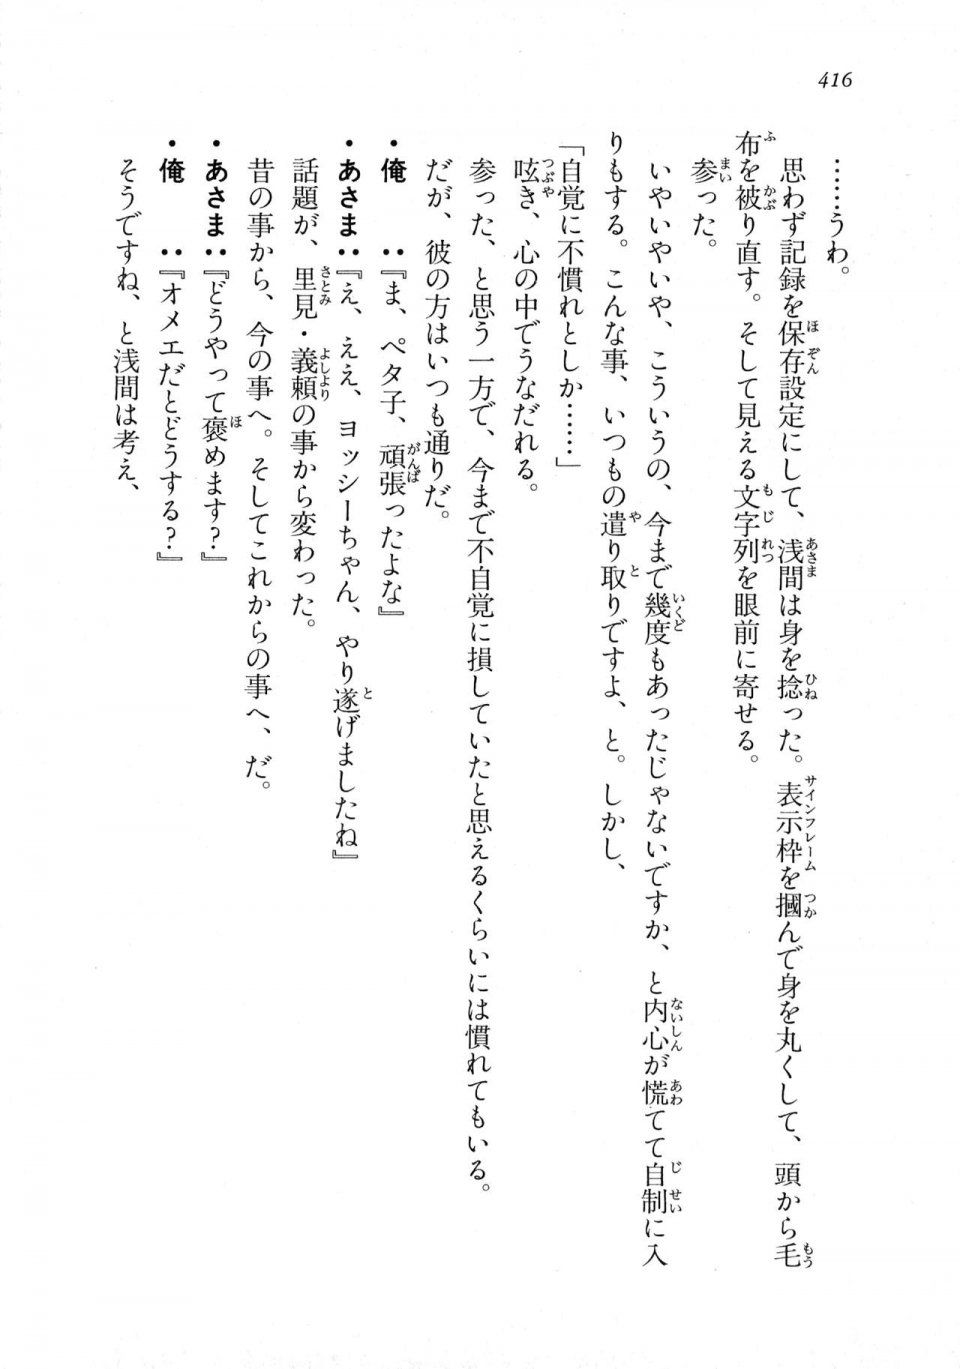 416
……うわ。
思わず記録を保存設定にして、浅間は身を捻った。表示枠を摑んで身を丸くして、頭から毛
布を被り直す。そして見える文字列を眼前に寄せる。
参った。
いやいやいや、こういうの、今まで幾度もあったじゃないですか、と内心が慌てて自制に入
りもする。こんな事、いつもの遣り取りですよ、と。しかし、
「自覚に不慣れとしか……」
呟き、心の中でうなだれる。
参った、と思う一方で、今まで不自覚に損していたと思えるくらいには慣れてもいる。
だが、彼の方はいつも通りだ。
・俺　　：『ま、ペタ子、頑張ったよな』
・あさま：『え、ええ、ヨッシーちゃん、やり遂げましたね』
話題が、里見・義頼の事から変わった。
昔の事から、今の事へ。そしてこれからの事へ、だ。
・あさま：『どうやって褒めます？』
・俺　　：『オメエだとどうする？』
そうですね、と浅間は考え、